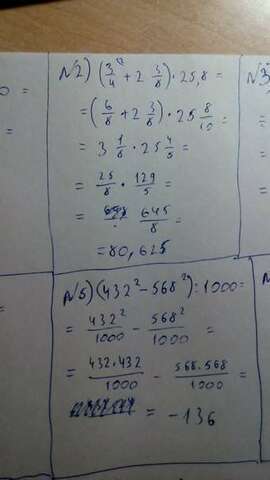 №2) (3/4 + 2 3/8) · 25,8 =
= (6/8 + 2 3/8) · 25 8/10 =
= 3 1/8 · 25 4/5 =
= 25/8 · 129/5 =
= 645/8 =
= 80,625
№3
№5) (432² - 568²) : 1000 =
= 432²/1000 - 568²/1000 =
= 432·432/1000 - 568·568/1000 =
= -136